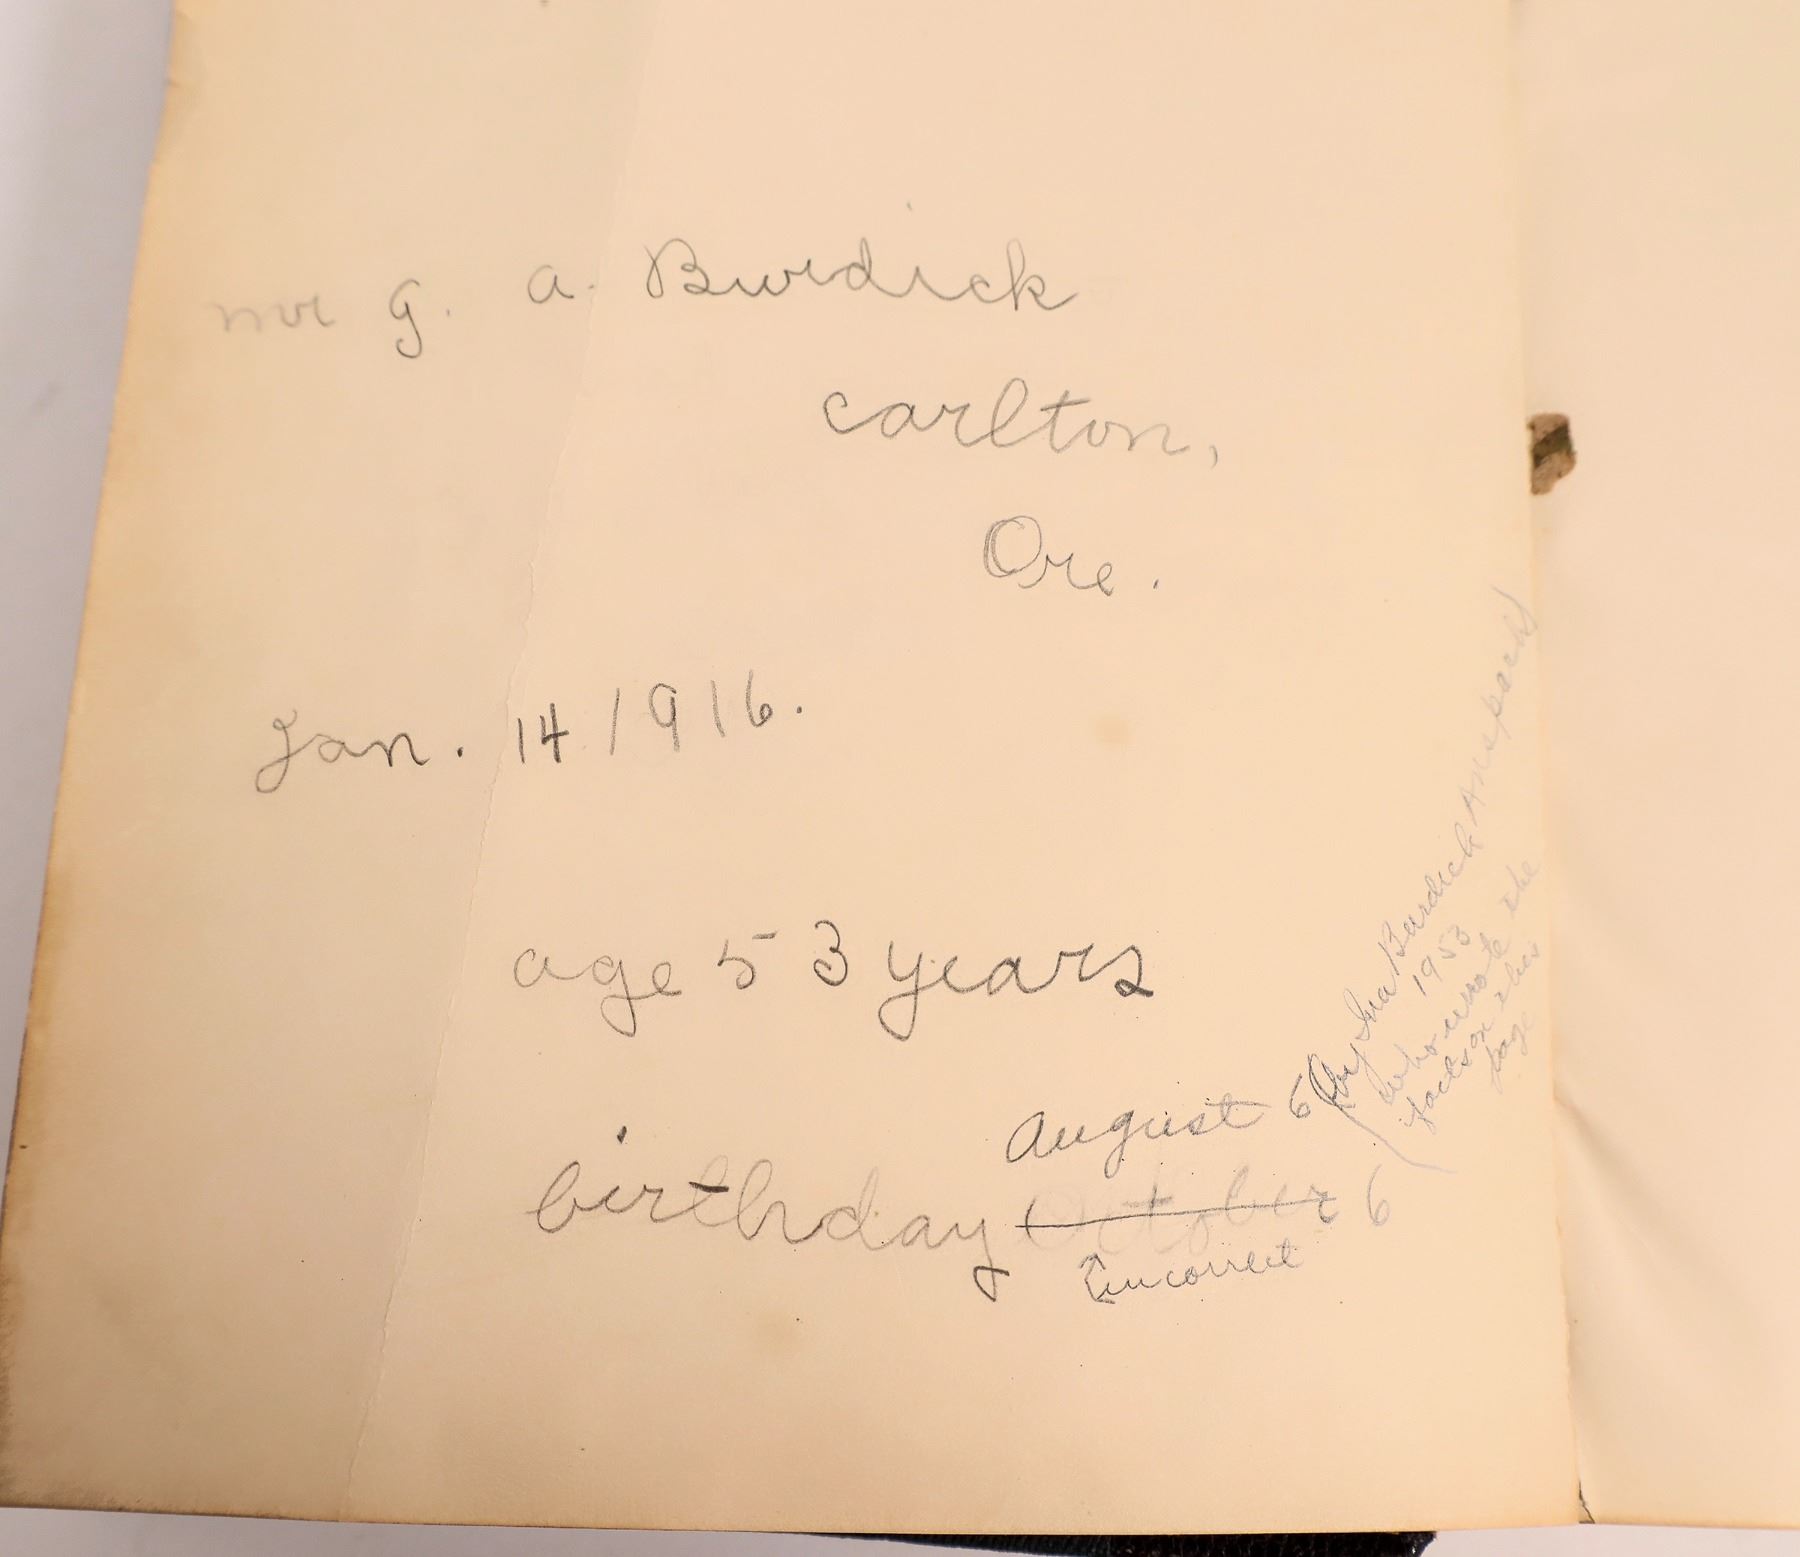 mr g. a. Burdick
carlton,
Ore.
Jan. 14 1916.
age 53 years
August 6
birthday October 6
incorrect
(by Ina Burdick Anspach)
1953
who wrote the
facts on this
page